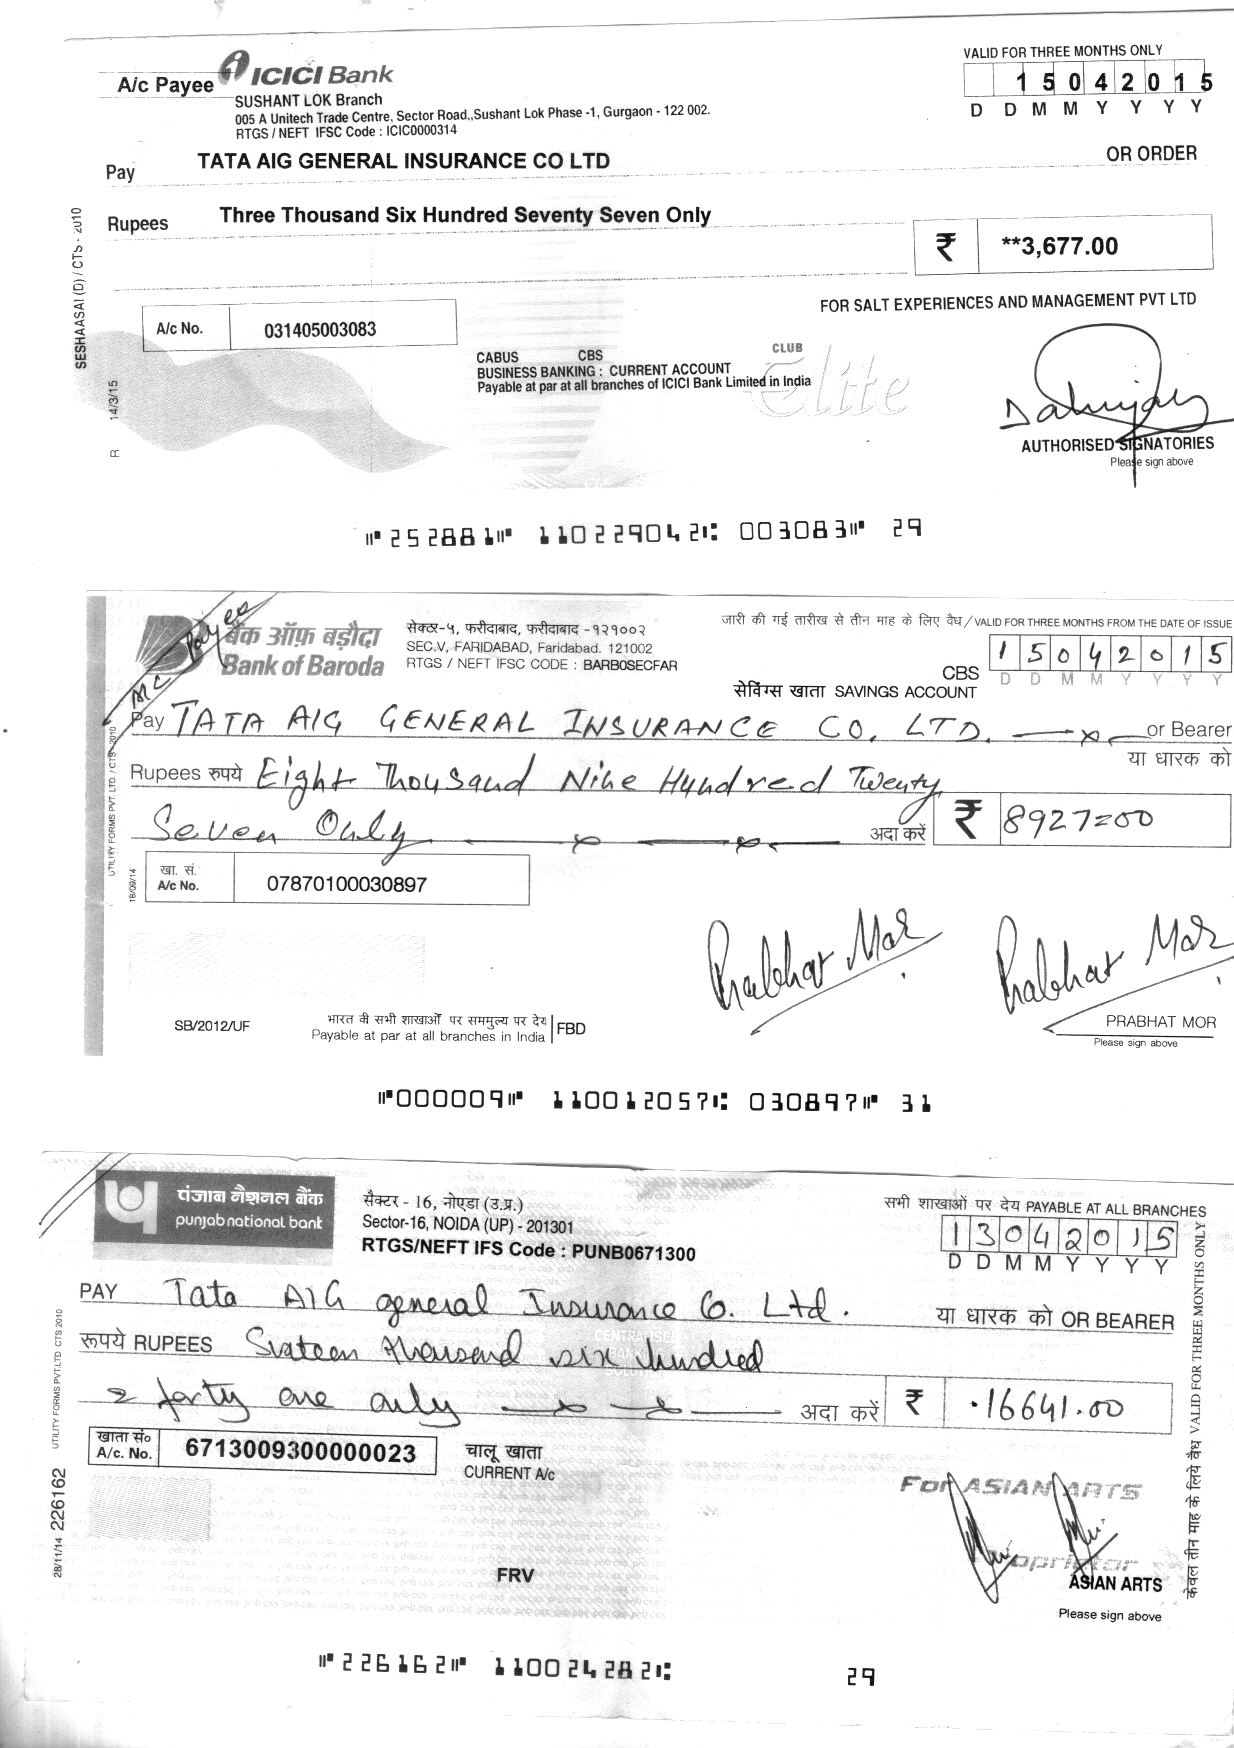 A/c Payee ICICI Bank
SUSHANT LOK Branch
005 A Unitech Trade Centre, Sector Road,,Sushant Lok Phase -1, Gurgaon - 122 002.
RTGS / NEFT IFSC Code : ICIC0000314
VALID FOR THREE MONTHS ONLY
15042015
D D M M Y Y Y Y
Pay TATA AIG GENERAL INSURANCE CO LTD OR ORDER
Rupees Three Thousand Six Hundred Seventy Seven Only
₹ **3,677.00
SESHAASAI (D) / CTS - 2010
R 14/3/15
FOR SALT EXPERIENCES AND MANAGEMENT PVT LTD
A/c No. 031405003083
CABUS CBS
BUSINESS BANKING : CURRENT ACCOUNT
Payable at par at all branches of ICICI Bank Limited in India
CLUB
Elite
AUTHORISED SIGNATORIES
Please sign above
⑈252881⑈ 110229042⑆ 003083⑈ 29
Payee
बैंक ऑफ़ बड़ौदा
Bank of Baroda
सेक्टर-५, फरीदाबाद, फरीदाबाद -१२१००२
SEC.V, FARIDABAD, Faridabad. 121002
RTGS / NEFT IFSC CODE : BARB0SECFAR
जारी की गई तारीख से तीन माह के लिए वैध/VALID FOR THREE MONTHS FROM THE DATE OF ISSUE
15042015
D D M M Y Y Y Y
CBS
सेविंग्स खाता SAVINGS ACCOUNT
Pay TATA AIG GENERAL INSURANCE CO. LTD. or Bearer
या धारक को
Rupees रुपये Eight Thousand Nine Hundred Twenty
Seven Only अदा करें ₹ 8927=00
UTILITY FORMS PVT. LTD / CTS - 2010
18/09/14
खा. सं.
A/c No. 07870100030897
Prabhat Mor Prabhat Mor
SB/2012/UF
भारत की सभी शाखाओं पर सममुल्य पर देय
Payable at par at all branches in India FBD
PRABHAT MOR
Please sign above
⑈000009⑈ 110012057⑆ 030897⑈ 31
पंजाब नैशनल बैंक
punjab national bank
सैक्टर - 16, नोएडा (उ.प्र.)
Sector-16, NOIDA (UP) - 201301
RTGS/NEFT IFS Code : PUNB0671300
सभी शाखाओं पर देय PAYABLE AT ALL BRANCHES
13042015
D D M M Y Y Y Y
PAY Tata AIG general Insurance Co. Ltd. या धारक को OR BEARER
रूपये RUPEES Sixteen thousand six hundred
& forty one only अदा करें ₹ 16641.00
खाता सं०
A/c. No. 6713009300000023
चालू खाता
CURRENT A/c
UTILITY FORMS PVT.LTD CTS 2010
28/11/14 226162
केवल तीन माह के लिये वैध VALID FOR THREE MONTHS ONLY
For ASIAN ARTS
Proprietor
FRV
ASIAN ARTS
Please sign above
⑈226162⑈ 110024282⑆ 29